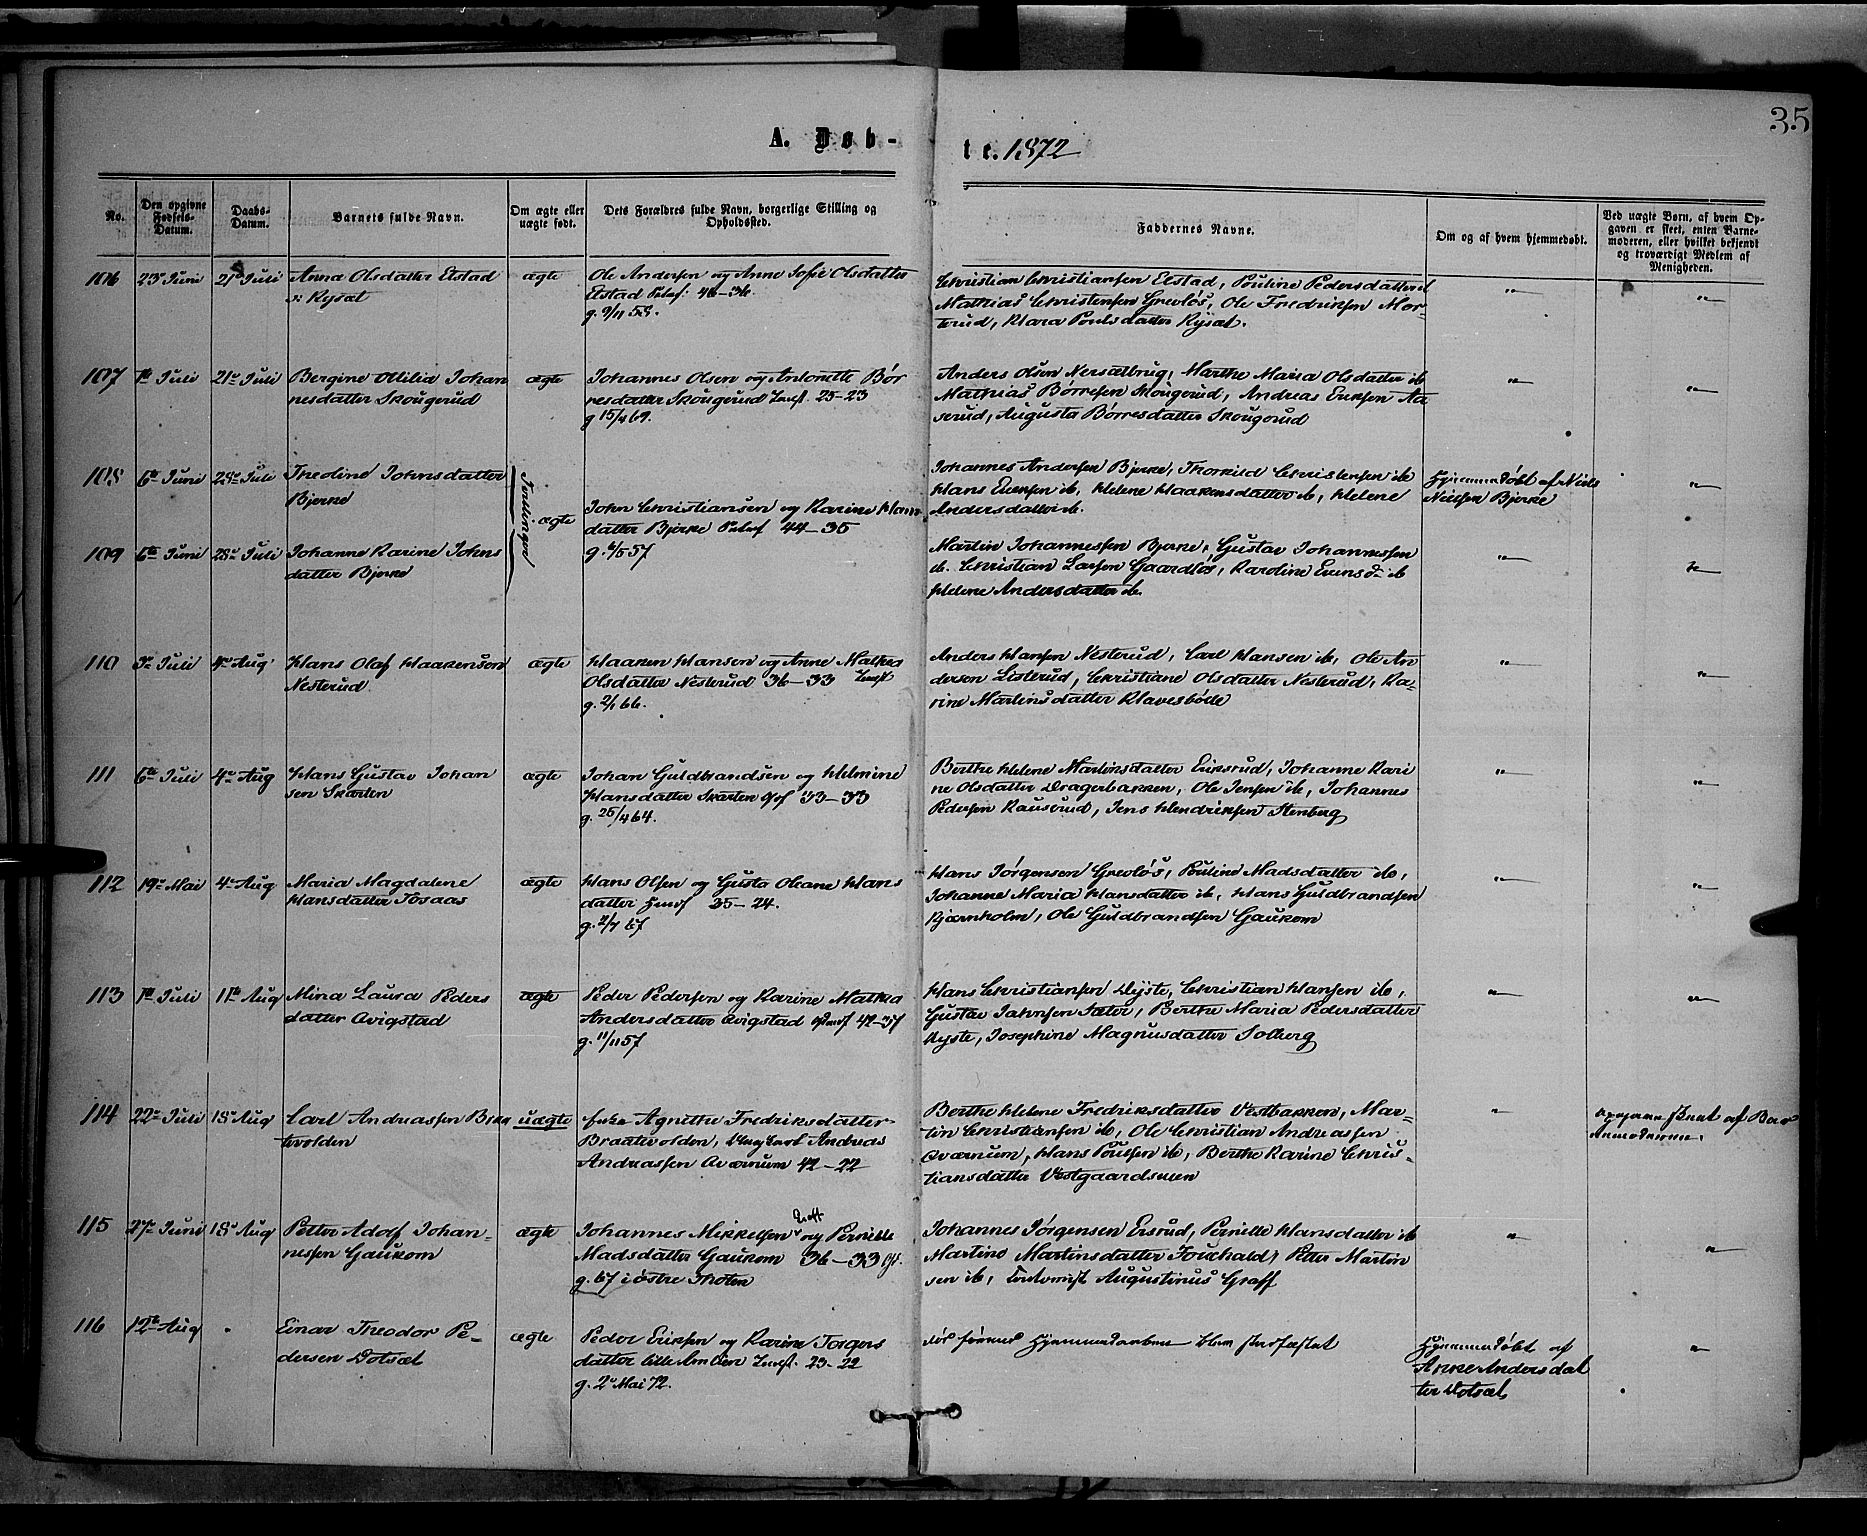 35
A. Døb-
te. 1872
No.
Den opgivne
Fødsels-
Datum.
Daabs-
Datum.
Barnets fulde Navn.
Om ægte eller
uægte født.
Dets Forældres fulde Navn, borgerlige Stilling og
Opholdssted.
Faddernes Navne.
Om og af hvem hjemmedøbt.
Ved uægte Børn, af hvem Op-
gaven er skeet, enten Barne-
moderen, eller hvilket bekjendt
og troværdigt Medlem af
Menigheden.
106
23 Juni
21 Juli
Anna Olsdatter Elstad
Rysæt
ægte
Ole Andersen og Anne Sofie Olsdatter
Elstad 46-36.
g. 9/11 58.
Christian Christiansen Elstad, Pouline Pedersdatter
Mathias Christensen Grevløs, Ole Fredriksen Mor-
terud, Klara Poulsdatter Rysæt.
107
1te Juli
21 Juli
Bergine Ottilia Johan
nesdatter Skougerud
ægte
Johannes Olsen og Antonette Bør
resdatter Skougerud 25-23
g 15/4 69.
Anders Olsen Nersætbrug, Marthe Maria Olsdatter ib
Mathias Børresen Skougerud, Andreas Eriksen Aa
serud, Augusta Børresdatter Skougerud
108
6te Juni
28 Juli
Theoline Johnsdatter
Bjerke
Tvillinger
ægte
John Christiansen og Karine Hans
datter Bjerke 44-35
g. 4/5 57
Johannes Andersen Bjerke, Thorkild Christensen ib
Hans Evensen ib, Helene Haakensdatter ib, Helene
Andersdatter ib.
Hjemmedøbt af Niels
Nielsen Bjerke
109
6te Juni
28 Juli
Johanne Karine Johns
datter Bjerke
Martin Johannessen Bjerke, Gustav Johannessen
ib. Christian Larsen Gaardløs, Karoline Evensd ib
Helene Andersdatter ib.
110
3 Juli
4 Aug
Hans Olaf Haakensen
Nesterud
ægte
Haaken Hansen og Anne Mathea
Olsdatter Nesterud 36-33
g. 2/1 66.
Anders Hansen Nesterud, Carl Hansen ib, Ole An
dersen Listerud, Christiane Olsdatter Nesterud, Ka-
rine Martinsdatter Klavesbøle
111
6te Juli
4 Aug
Hans Gustav Johan
sen Skarten
ægte
Johan Guldbrandsen og Helmine
Hansdatter Skarten 33-33
g. 26/4 64.
Berthe Helene Martinsdatter Eriksrud, Johanne Kari
ne Olsdatter Dragerbakken, Ole Jensen ib, Johannes
Pedersen Rauserud, Jens Hendriksen Stenberg
112
19 Mai
4 Aug
Maria Magdalene
Hansdatter Tosaas
ægte
Hans Olsen og Gusta Oleane Hans
datter 35-24.
g. 2/7 67
Hans Jørgensen Grevløs, Pouline Madsdatter ib,
Johanne Maria Hansdatter ib, Hans Guldbrandsen
Bjørnholm, Ole Guldbrandsen Gaukom
113
1te Juli
11te Aug
Mina Laura Peders
datter Qvigstad
ægte
Peder Pedersen og Karine Mathea
Andersdatter Qvigstad 42-37
g. 11/11 57
Hans Christiansen Dyste, Christian Hansen ib,
Gustav Jahnsen Sæter, Berthe Maria Pedersdatter
Dyste, Josephine Magnusdatter Solberg
114
22 Juli
18 Aug
Carl Andreassen Bra
tevolden
uægte
Agnethe Fredriksdatter
Bratevolden, Carl Andreas
Andreassen Qværnum 42-22
Berthe Helene Fredriksdatter Vestbakken, Mar-
tin Christiansen ib, Ole Christian Andreassen
Qværnum, Hans Poulsen ib, Berthe Karine Chris-
tiansdatter Vestgaardseien
af Bar
nemoderen.
115
27 Juni
18 Aug
Petter Adolf Johan-
nesen Gaukom
ægte
Johannes Mikkelsen og Pernille
Madsdatter Gaukom 36-33
g. 67 i østre Thoten
Johannes Jørgensen Ersrud, Pernille Hansdatter ib
Martine Martinsdatter, Petter Martin
sen ib, Augustinus Graff
116
12te Aug
Einar Theodor Pe-
dersen Dotsæt
ægte
Peder Eriksen og Karine Torgers
datter lille 23-22
g. 2 Mai 72.
Død førend Hjemmedaaben blev stadfæstet
Hjemmedøbt af
Anne Andersdat
ter Dotsæt